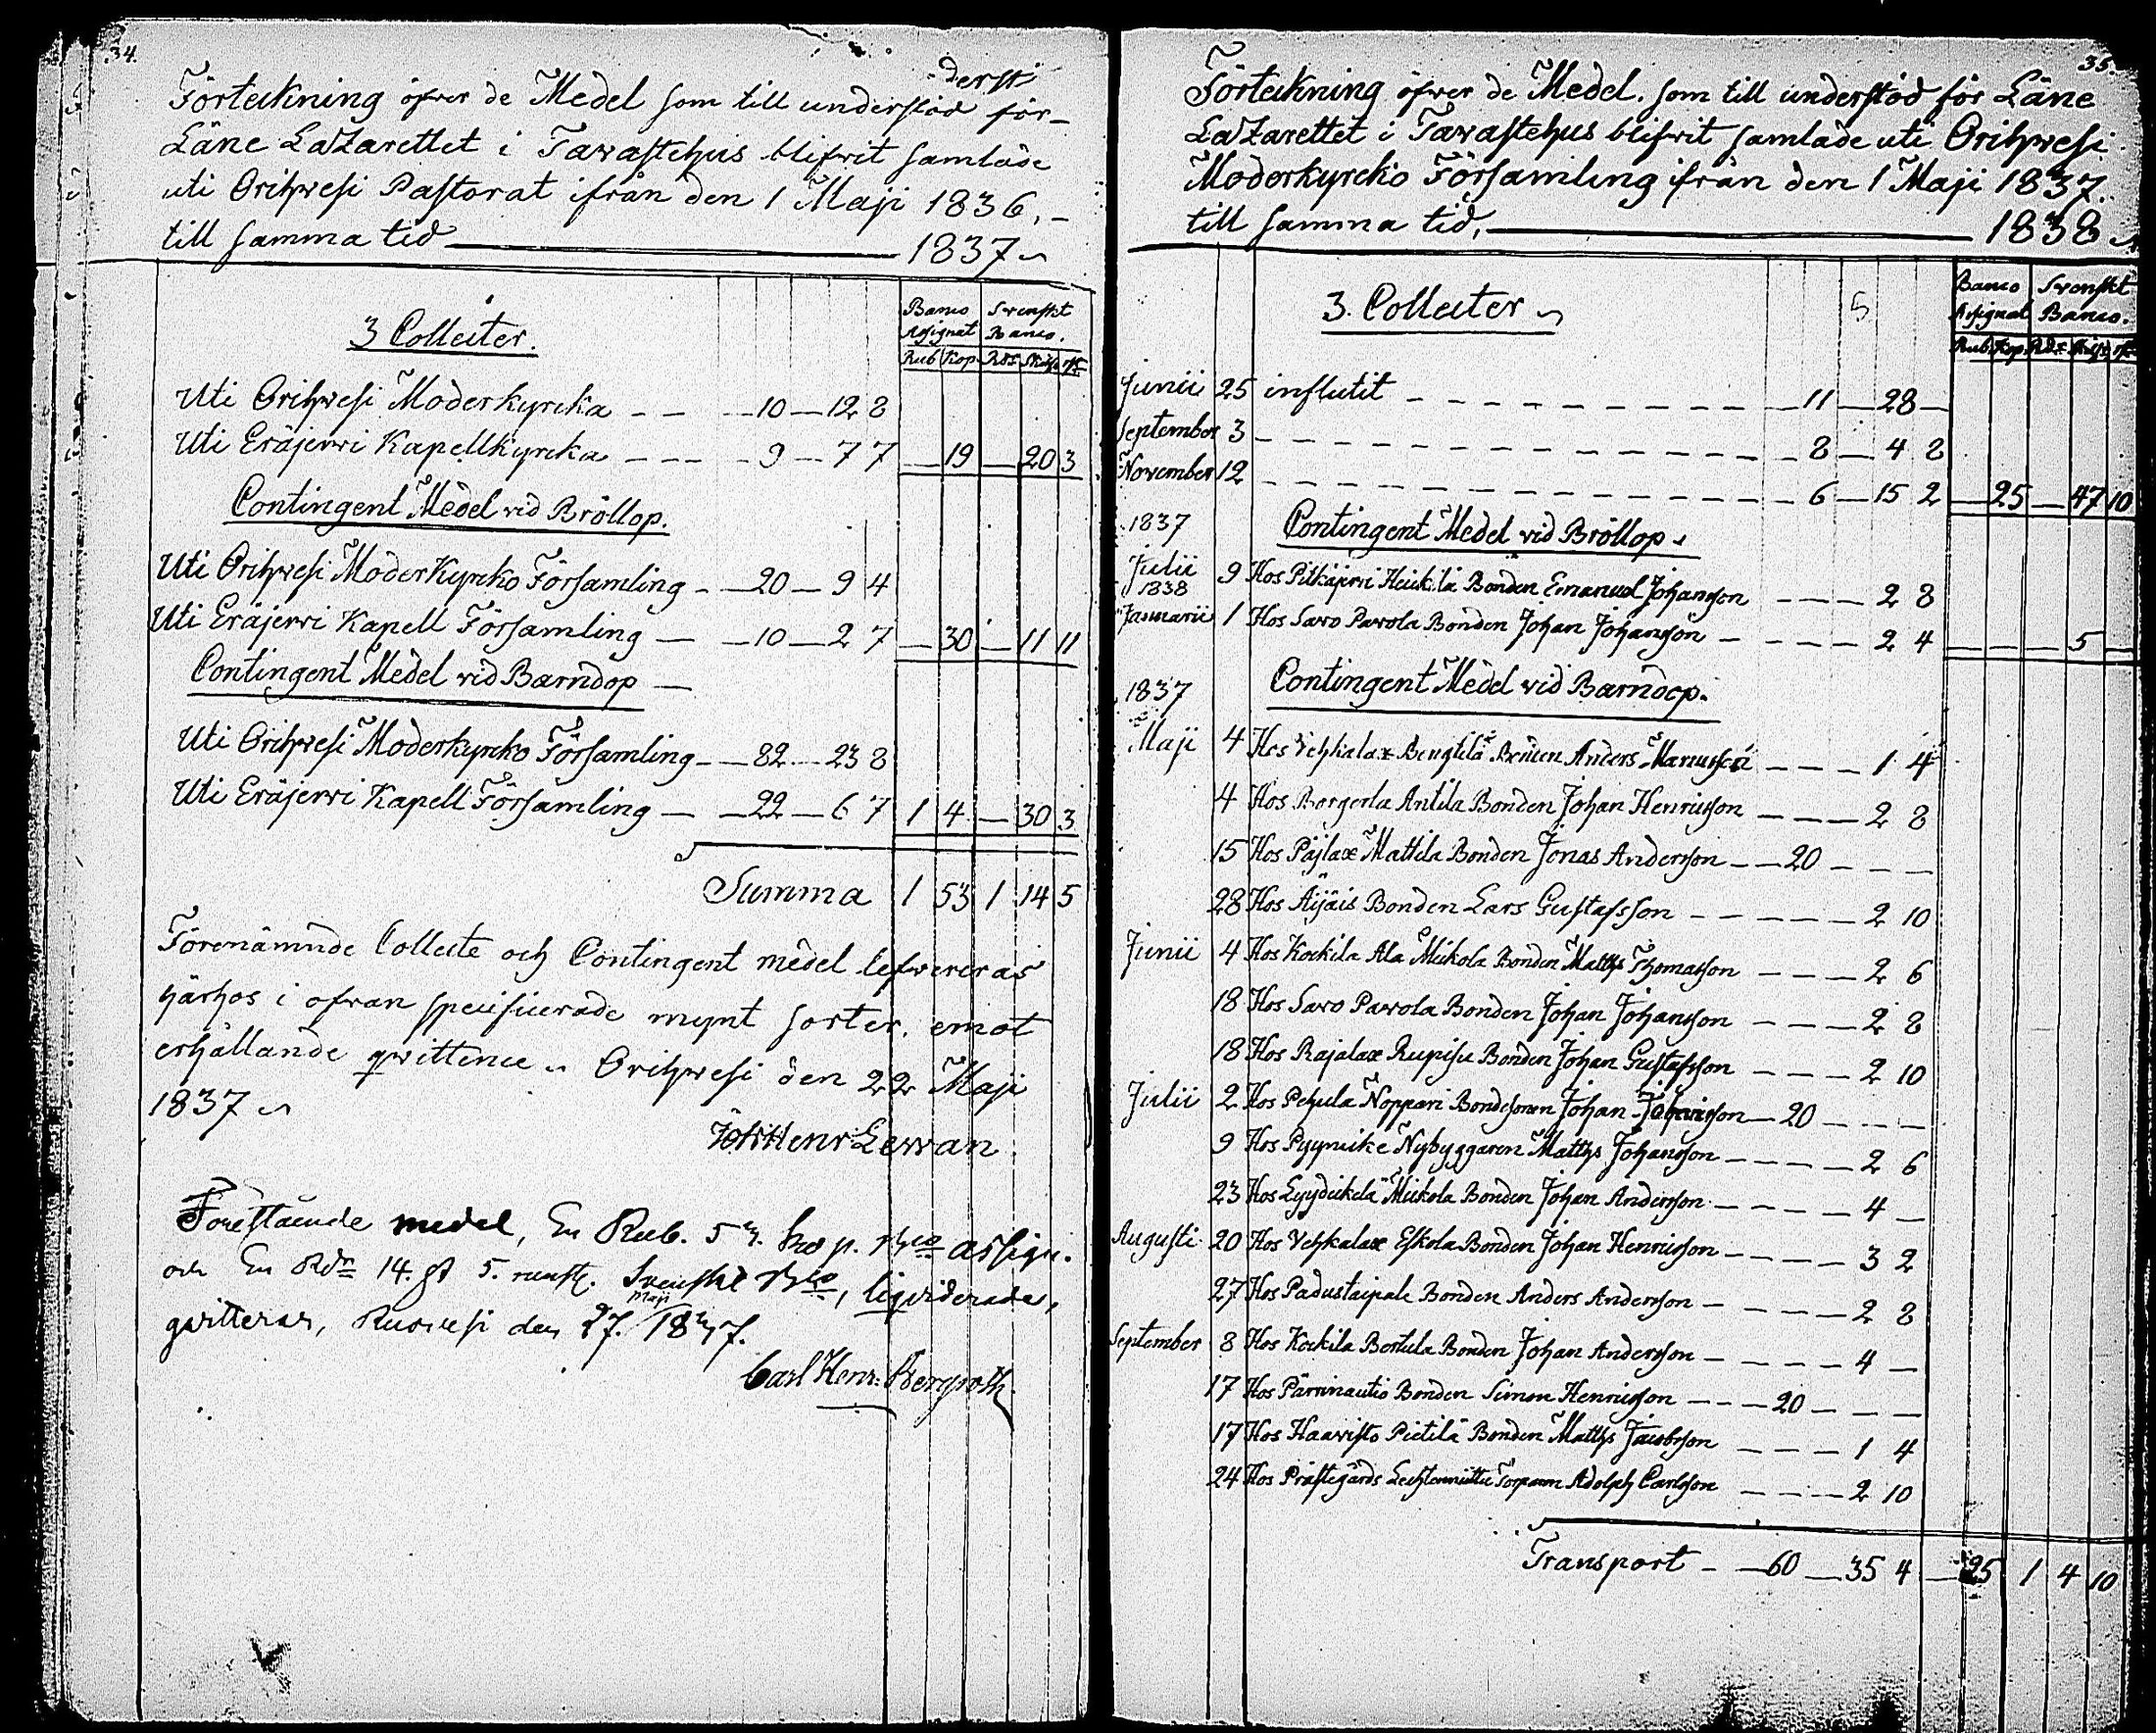 34.
Förteckning öfver de Medel som till understöd för
Läne Lazarettet i Tavastehus blifvit samlade
uti Orihvesi Pastorat ifrån den 1 Maji 1836,
till samma tid 1837
Banco Svenskt
Assignat Banco.
3 Collecter.
Rub Kop. Rdr Skill. rst
Uti Orihvesi Moderkyrcka — — 10 — 12 8
Uti Eräjervi Kapellkyrcka — — — 9 — 7 7 — 19 — 20 3
Contingent Medel vid Bröllop.
Uti Orihvesi ModerKyrcko Församling — 20 — 9 4
Uti Eräjervi Kapell Församling — — 10 — 2 7 — 30 — 11 11
Contingent Medel vid Barndop —
Uti Orihvesi Moderkyrcko Församling — 82 — 23 8
Uti Eräjervi Kapell Församling — — 22 — 6 7 1 4 — 30 3
Summa 1 53 1 14 5
Förenämnde Collecte och Contingent medel lefvereras
härhos i ofvan specificerade mynt sorter, emot
erhållande qvittence. Orihvesi den 22 Maji
1837
Joh Henr Levvan
Förestående medel, En Rub. 53. kop. Bco assign.
och En Rdr 14. s 5. runst. Svenskt Bco, liqviderade,
qvitteras, Ruovesi den 27. Maji 1837.
Carl Henr: Bergroth.
35.
Förteckning öfver de Medel. som till understöd för Läne
Lazarettet i Tavastehus blifvit samlade uti Orihvesi
Moderkyrcko Församling ifrån den 1 Maji 1837.
till samma tid, 1838
Banco Svenskt
Assignat Banco.
3. Collecter
5
Rub Kop. Rdr Skill. rst
Junii 25 influtit — 11 — 28 —
September 3 — 8 — 4 8
November 12 — 6 — 15 2 — 25 — 47 10
1837 Contingent Medel vid Bröllop
Julii 9 Hos Pitkäjervi Heickilä Bonden Emanuel Johansson — — — 2 8
1838
Januarii 1 Hos Savo Pavola Bonden Johan Johansson — — — — 2 4 — — — 5 —
1837 Contingent Medel vid Barndop.
Maji 4 Hos Vehkalax Bengtilä Bonden Anders — — — 1 4
4 Hos Antila Bonden Johan Henricsson — — — 2 8
15 Hos Pajlax Mattila Bonden Jonas Andersson — — 20 — — —
28 Hos Äijäis Bonden Lars Gustafsson — — — — — 2 10
Junii 4 Hos Kockila Ala Mickola Bonden Matths Thomasson — — — 2 6
18 Hos Savo Pavola Bonden Johan Johansson — — — 2 8
18 Hos Rajalax Bonden Johan Gustafsson — — — 2 10
Julii 2 Hos Pehula Noppari Bondesonen Johan — 20 — — —
9 Hos Nybyggaren Matths Johansson — — — — 2 6
23 Hos Mickola Bonden Johan Andersson — — — — 4 —
Augusti 20 Hos Vehkalax Eskola Bonden Johan Henricsson — — — — 3 2
27 Hos Padustaipale Bonden Anders Andersson — — — — 2 8
September 8 Hos Kockila Bertula Bonden Johan Andersson — — — — 4 —
17 Hos Bonden Simon Henricsson — — — 20 — — —
17 Hos Haavisto Pietilä Bonden Matths Jacobsson — — — 1 4
24 Hos Prästegårds Torparen Adolph Carlsson — — — 2 10
Transport — — 60 — 35 4 — 25 1 4 10